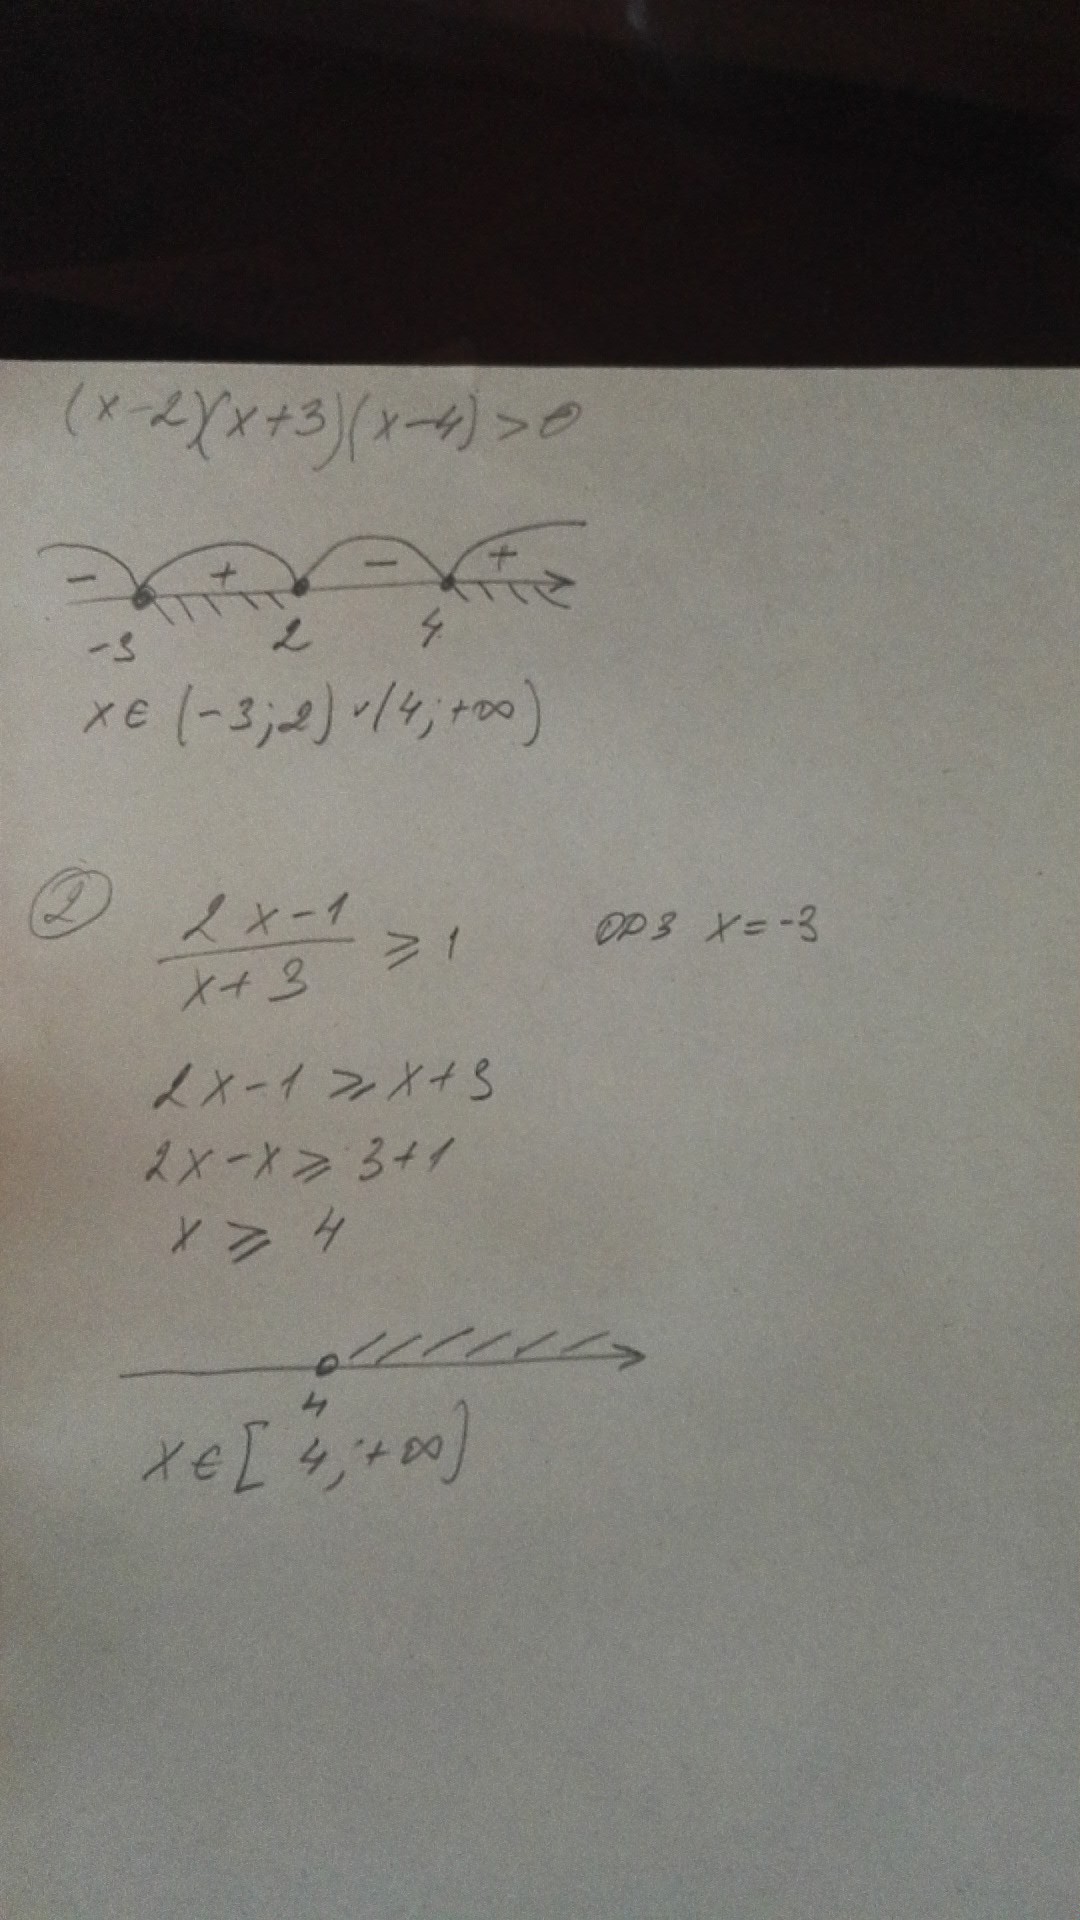 (x-2)(x+3)(x-4)>0
- + - +
-3 2 4
x∈(-3;2)∨(4;+∞)
2
2x-1
x+3
≥1 ОДЗ x=-3
2x-1≥x+3
2x-x≥3+1
x≥4
4
x∈[4;+∞)